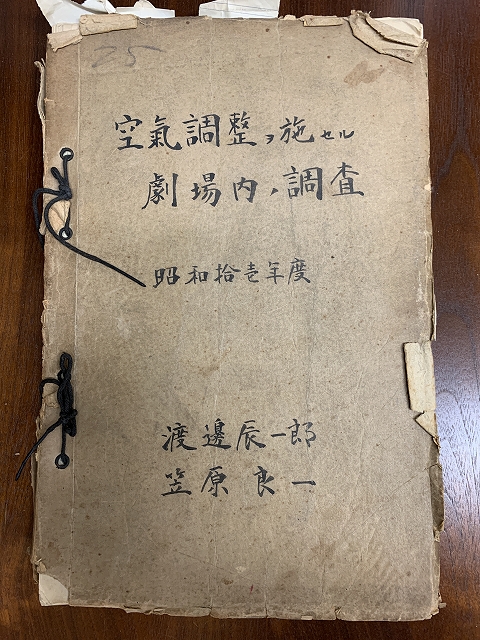 25
空氣調整ヲ施セル
劇場内ノ調査
昭和拾壱年度
渡邊辰一郎
笠原良一